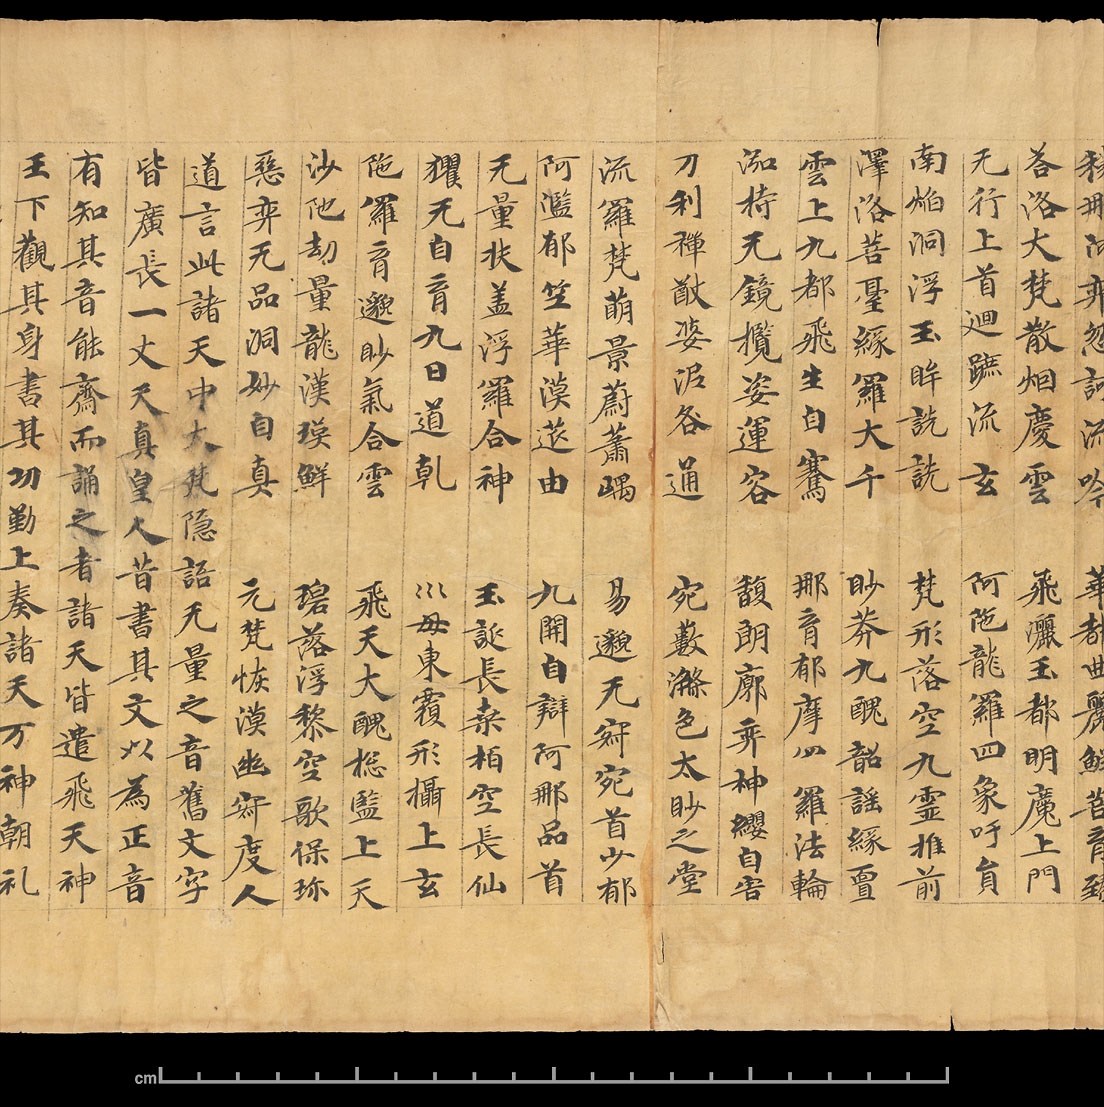 那阿弈忽訶流吟　華都曲麗鮮菩育臻
荅洛大梵散烟慶雲　飛灑玉都明魔上門
无行上首迴蹠流玄　阿陁龍羅四象吁員
南焰洞浮玉眸詵詵　梵形落空九靈推前
澤洛菩臺緣羅大千　眇莽九醜韶謡緣亶
雲上九都飛生自騫　那育郁摩四羅法輪
泓持无鏡攬姿運容　馥朗廓弈神纓自害
刀利禪猷婆泥各通　宛藪滌色太眇之堂
流羅梵萌景蔚蕭嵎　易邈无寂宛首少郁
阿濫郁竺華漠莚由　九開自辯阿那品首
无量扶盖浮羅合神　玉誕長桒柏空長仙
玃无自育九日道乹　巛母東覆形攝上玄
陁羅育邈眇氣合雲　飛天大醜揔監上天
沙陁劫量龍漢瑛鮮　碧落浮黎空歌保珎
惡弈无品洞妙自真　元梵恢漠幽寂度人
道言此諸天中大梵隱語无量之音舊文字
皆廣長一丈天真皇人昔書其文以為正音
有知其音能齋而誦之者諸天皆遣飛天神
王下觀其身書其功勤上奏諸天万神朝礼
cm